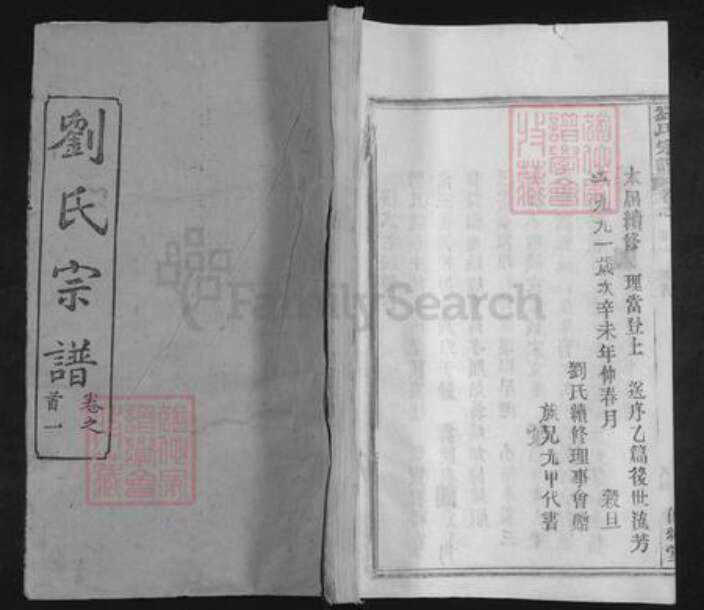 劉氏宗譜
卷之
首一
本屆續修 理當登上 送序乙篇後世流芳
一九九一歲次辛未年仲春月 穀旦
劉氏續修理事會贈
族兄元甲代書
FamilySearch